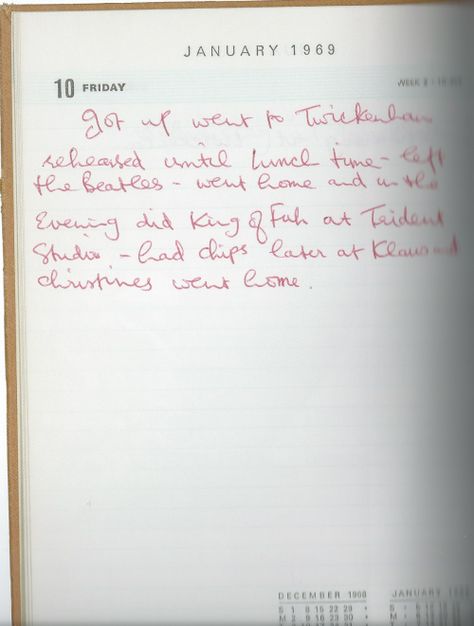 JANUARY 1969
10 FRIDAY
WEEK 2
got up went to Twickenham
rehearsed until lunch time - left
the Beatles - went home and in the
Evening did King of Fuh at Trident
Studio - had chips later at Klaus and
christines went home.
DECEMBER 1968 JANUARY
S 1 8 15 22 29
M 2 9 16 23 30